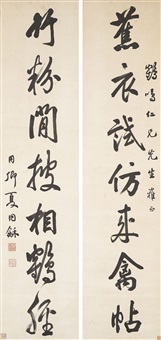 鶴鳴仁兄先生雅正
蕉衣試仿來禽帖
竹粉閒披相鶴經
用卿夏同龢